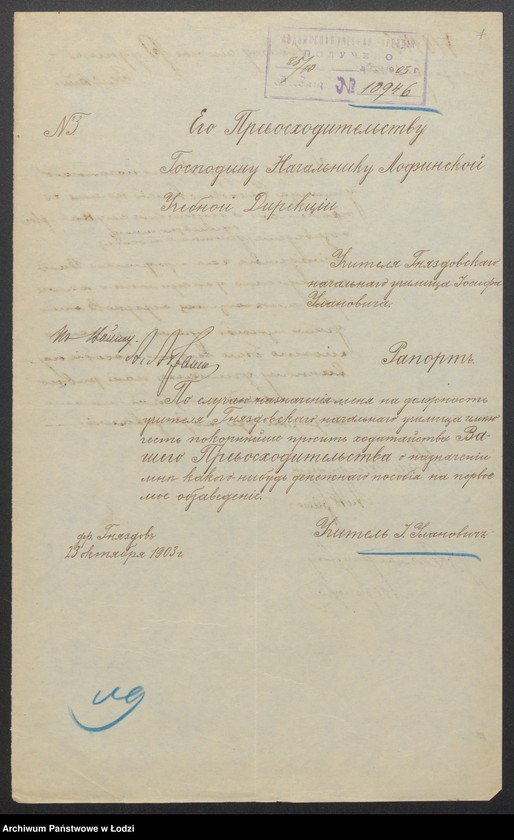 ПОЛУЧЕНО
28/10 1903 г.
№ 10946
№ 3
Его Превосходительству
Господину Начальнику Лодзинской
Учебной Дирекціи
Учителя Гняздовскаго
начальнаго училища Іосифа
Улановича.
Рапортъ.
По случаю назначенія меня на должность
учителя Гняздовскаго начальнаго училища имѣю
честь покорнѣйше просить ходатайство Ва-
шего Превосходительства о назначеніи
мнѣ какого нибудь денежнаго пособія на перво
мое обзаведеніе.
Учитель І. Улановичъ
др. Гняздовъ
25 октября 1903 г.
Archiwum Państwowe w Łodzi